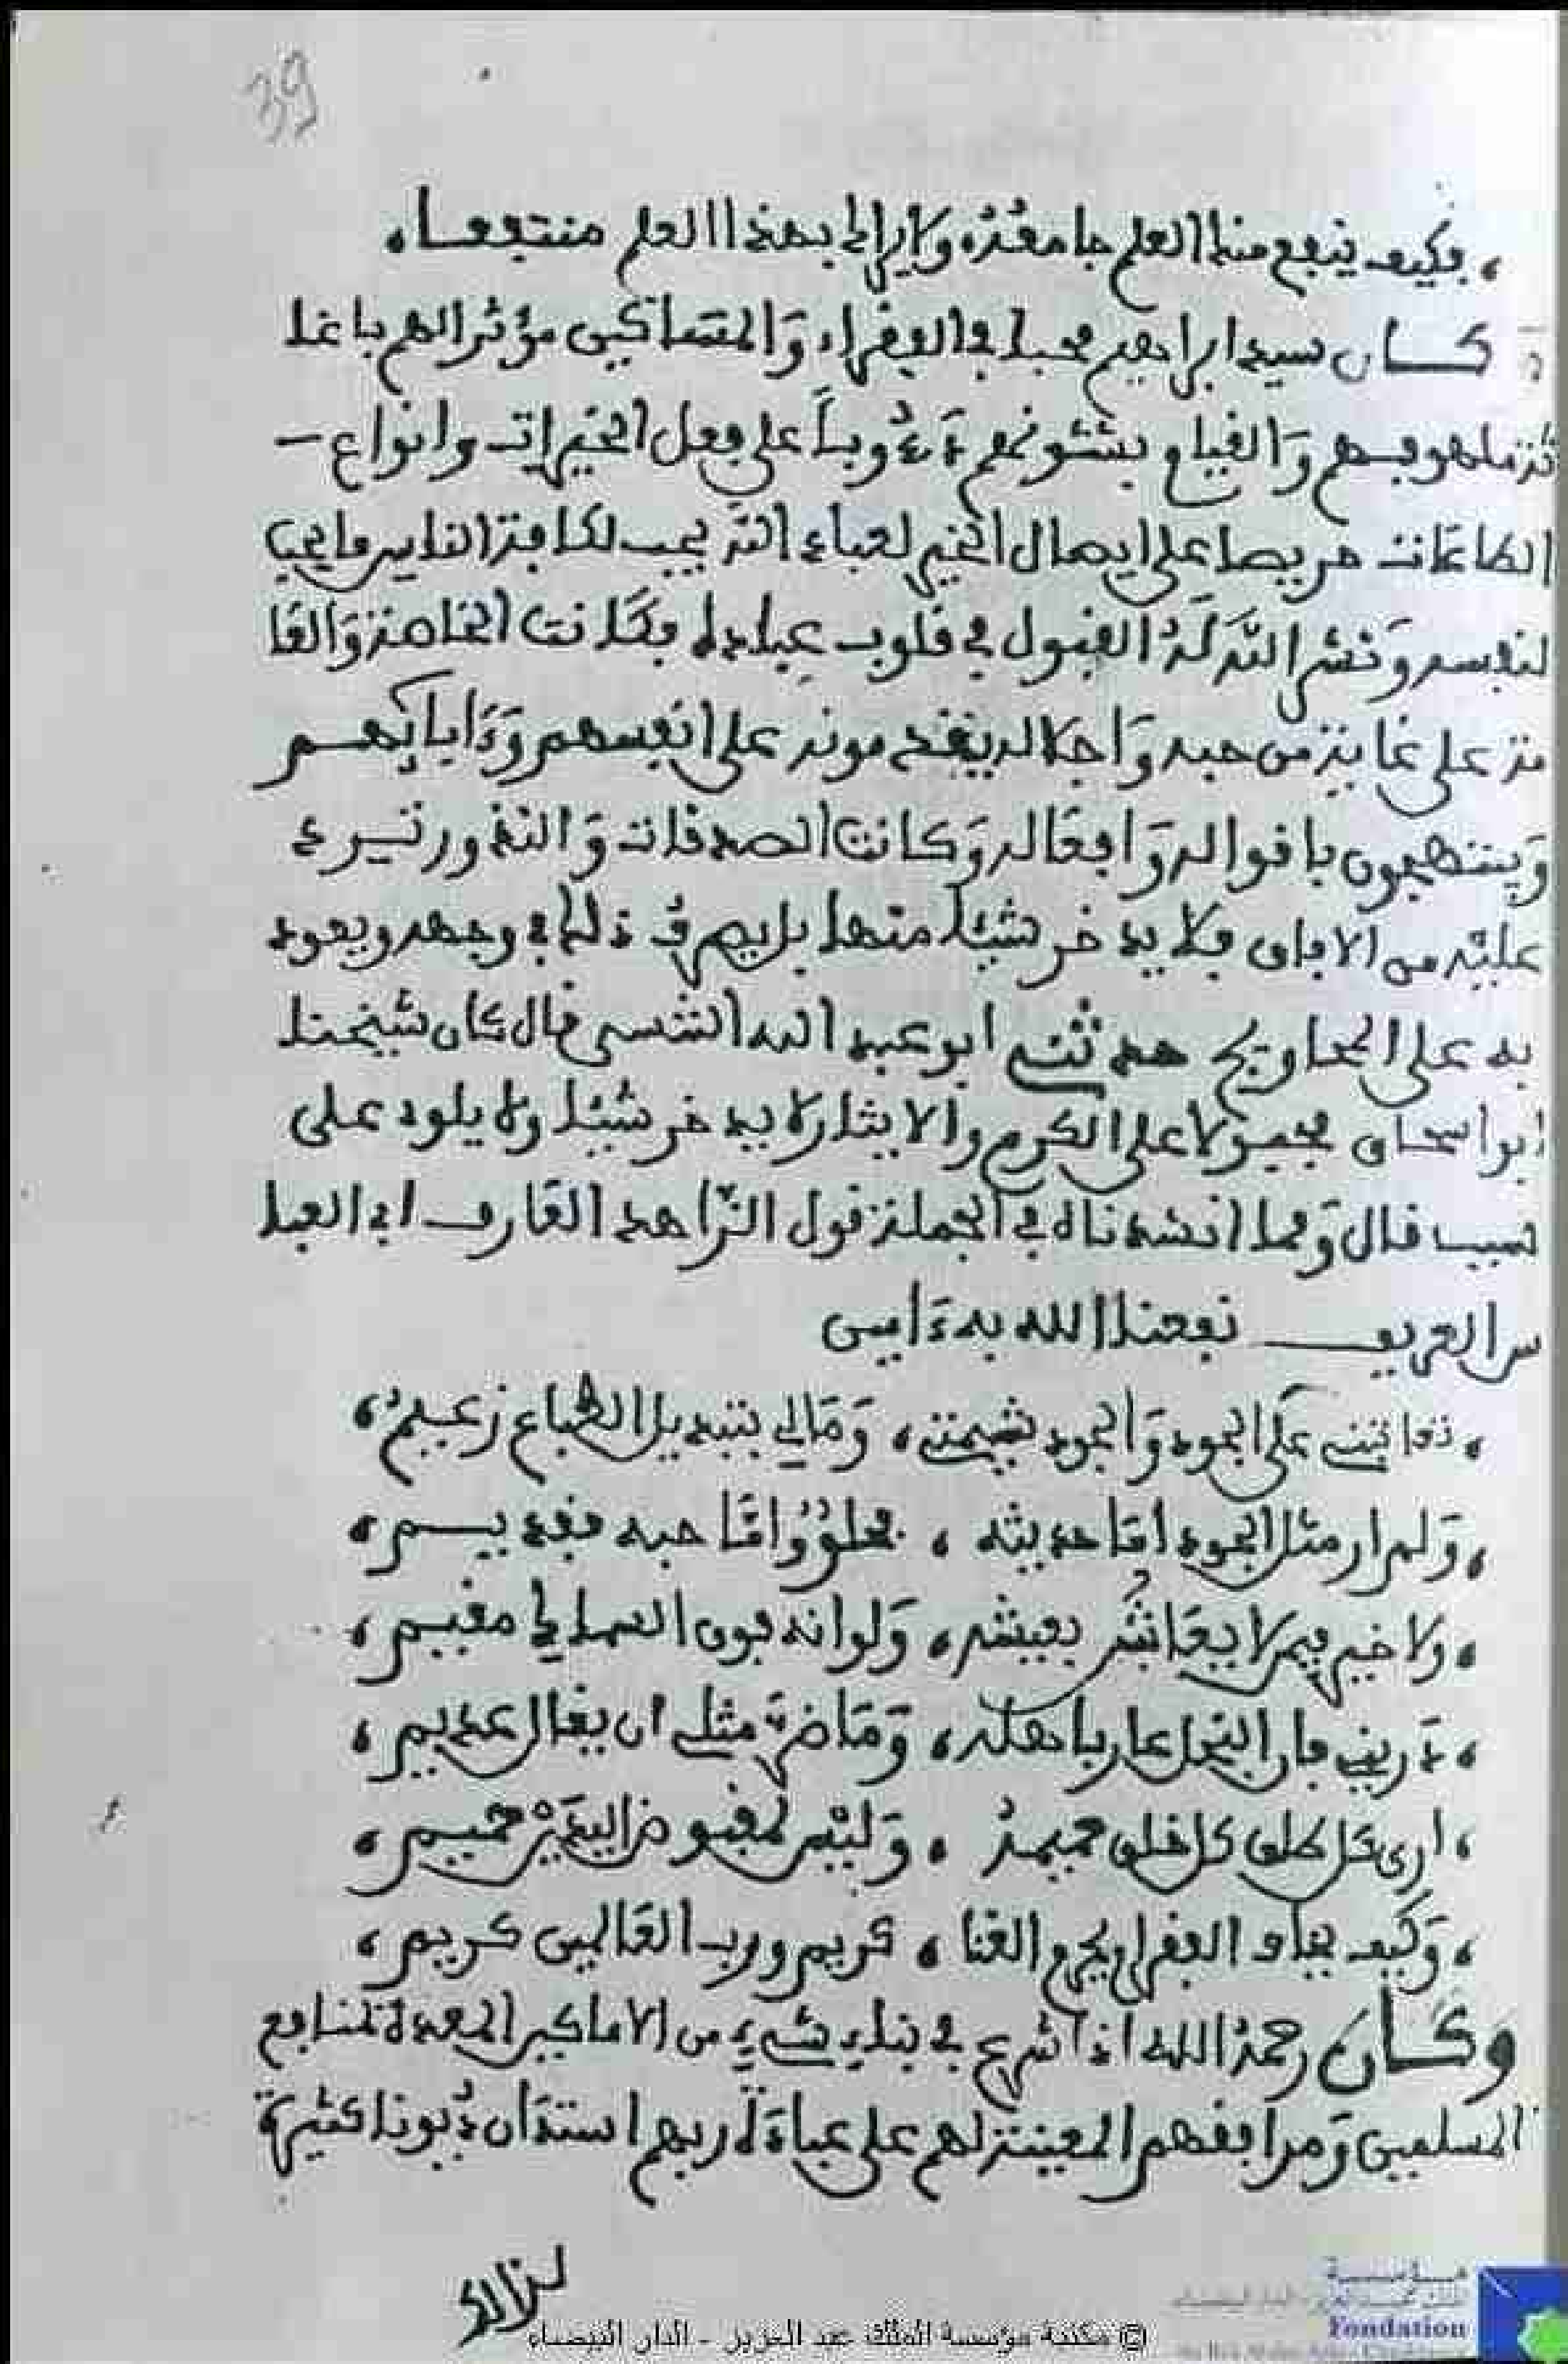 39
، فكيف ينفع منا العلم جامعه ولا يرى بهذا العلم منتفعا،
كان سيدا ابراهيم محبا في الفقراء والمساكين مؤثرا لهم باغا
ثة ملهوفهم والقيام بشئونهم دءوبا على فعل الخيرات وانواع
الطاعات حريصا على ايصال الخير لعباد الله يحب لكافة الناس ما يحب
لنفسه ونشر الله له القبول في قلوب عباده فكانت الخاصة والعا
مة على غاية من حبه واجلاله يقدمونه على انفسهم وءابائهم
وينتهجون باقواله وافعاله وكانت الصدقات والنذور ترد
عليه من الافاق فلا يدخر شيئا منها بل يصرف ذلك في وجهه ويعود
به على المحاويج حدثني ابو عبد الله التنسي قال كان شيخنا
ابو اسحاق مجبولا على الكرم والايثار لا يدخر شيئا ولا يلوي على
سبب قال ومما انشدناه في الجملة قول الزاهد العارف ابي العبا
س العريف نفعنا الله به ءامين
، تعاتبني على الجود والجود شيمتي، ومالي بتبديل الطباع زعيم،
، ولم ار مثل الجود اما حديثه ، فحلو واما حبه فقديم،
، ولا خير فيمن لا يعاش بعيشه، ولو انه فوق السماء مقيم،
، ذريني فان البخل عار باهله، وما ضر مثلي ان يقال عديم،
، ارى كل طلق كل خلق حميمه ، وليس لمقبوض اليدين حميم،
، وكيف يخاف الفقر او يحرم الغنا ، كريم ورب العالمين كريم،
وكان رحمه الله اذا شرع في بناء شيء من الاماكن المعدة لمنافع
المسلمين ومرافقهم المعينة لهم على عبادة ربهم استدان ديونا كثيرة
لذالك
© مكتبة مؤسسة الملك عبد العزيز - الدار البيضاء
مؤسسة
Fondation